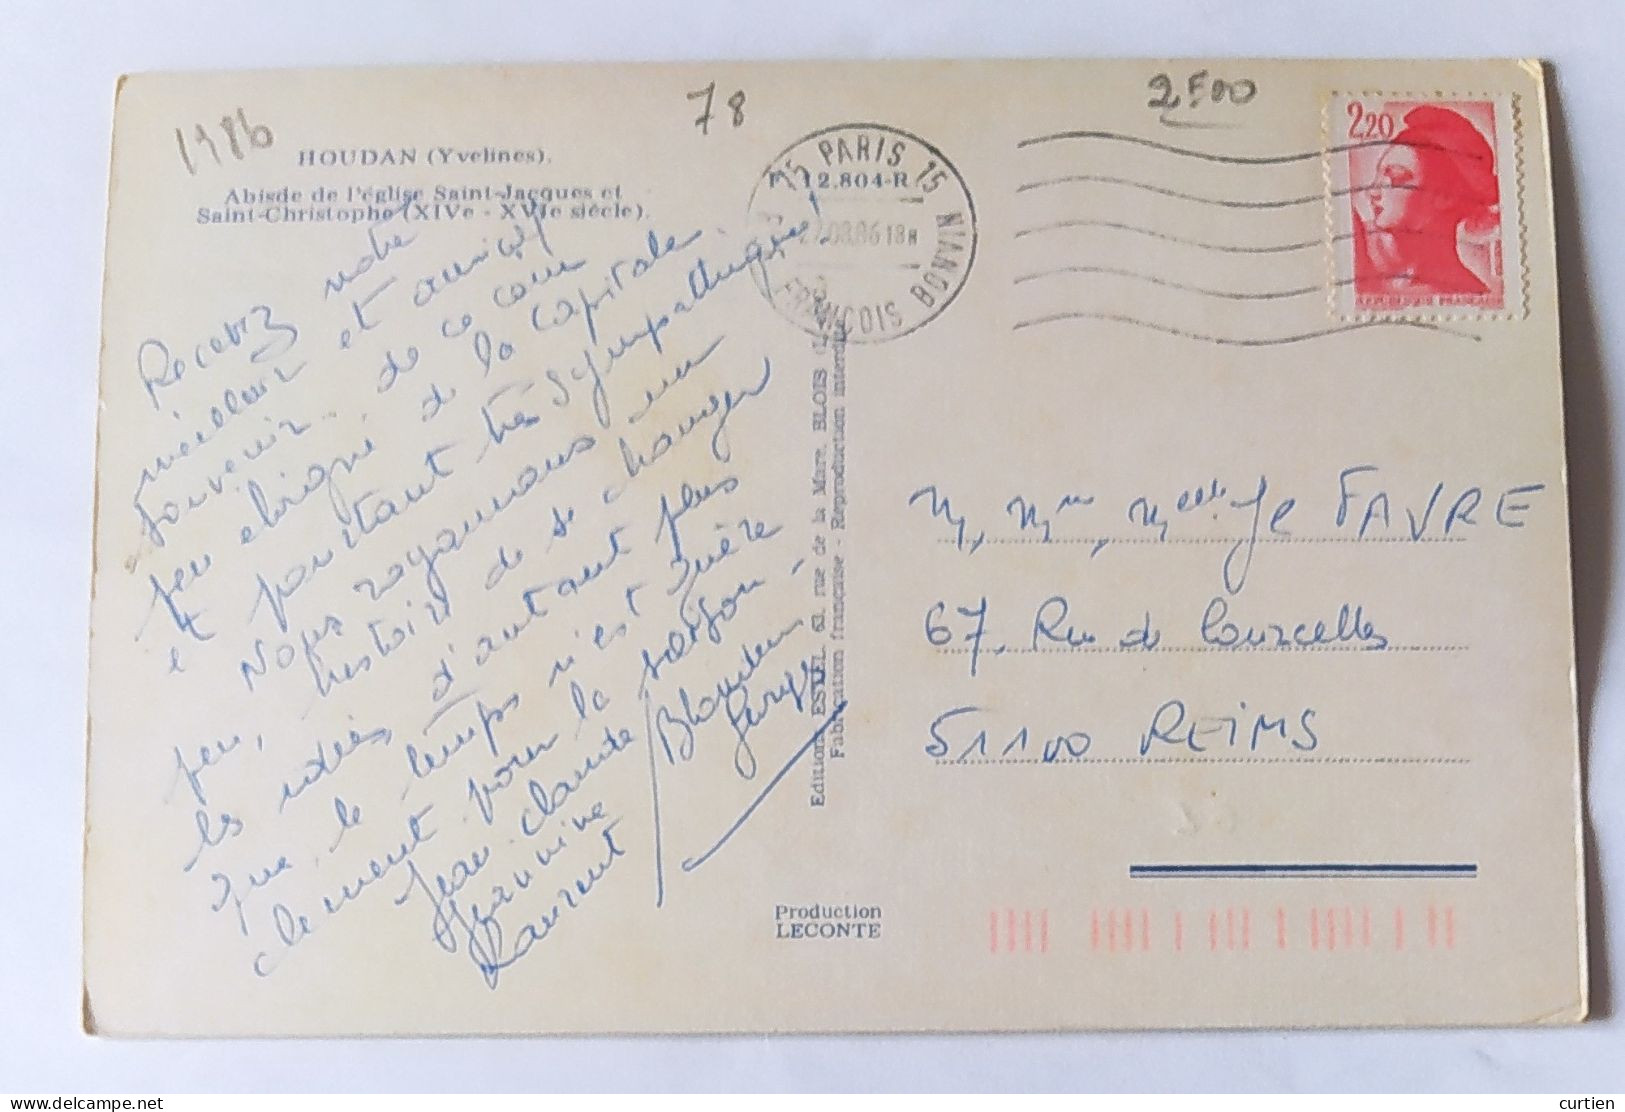 1986
78
2F00
HOUDAN (Yvelines).
F 12.804-R
Abisde de l'église Saint-Jacques et
Saint-Christophe (XIVe - XVIe siècle).
75 PARIS 15
27.08.86 18H
FRANÇOIS BONVIN
2,20
REPUBLIQUE FRANÇAISE
Recevez notre
meilleur et amical
souvenir.. de ce coin
peu éloigné de la capitale.
et pourtant très sympathique!
Nous voyageons un
peu, histoire de se changer
les idées, d'autant plus
que le temps n'est guère
clément pour la saison -
Jean-claude
Jeannine
Laurent
Editions ESTEL, 63, rue de la Mare, BLOIS
Fabrication française - Reproduction interdite
Production
LECONTE
M, Mme, Melle FAVRE
67, Rue de Courcelles
51100 REIMS
curtien